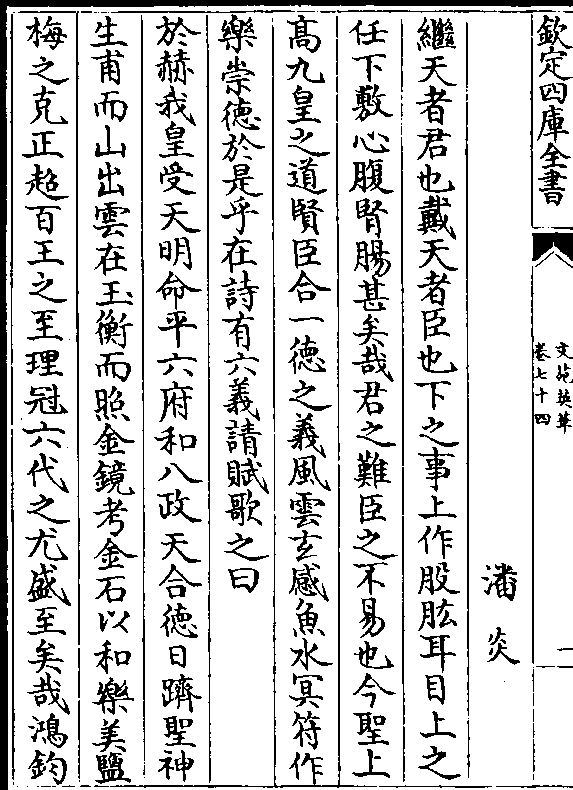 欽定四庫全書
文苑英華
卷七十四
一
潘炎
繼天者君也戴天者臣也下之事上作股肱耳目上之
任下敷心腹腎腸甚矣哉君之難臣之不易也今聖上
髙九皇之道賢臣合一德之義風雲玄感魚水冥符作
樂崇德於是乎在詩有六義請賦歌之曰
於赫我皇受天明命平六府和八政天合德日躋聖神
生甫而山出雲在玉衡而照金鏡考金石以和樂美鹽
梅之克正超百王之至理冠六代之尤盛至矣哉鴻鈞